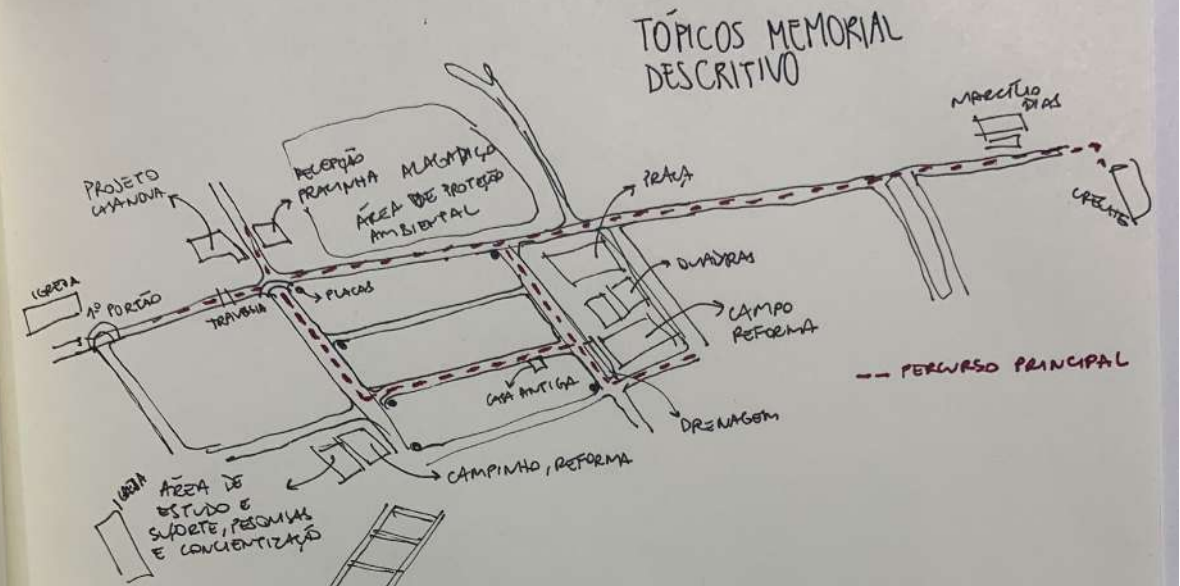 TÓPICOS MEMORIAL
DESCRITIVO
MARCÍLIO
DIAS
CRECHE
PROJETO
CASA NOVA
RECEPÇÃO
PRACINHA
ALAGADIÇO
ÁREA DE PROTEÇÃO
AMBIENTAL
PRAÇA
QUADRAS
CAMPO
REFORMA
IGREJA
1º PORTÃO
TRAVESSIA
PLACAS
CASA ANTIGA
-- PERCURSO PRINCIPAL
DRENAGEM
CAMPINHO, REFORMA
IGREJA
ÁREA DE
ESTUDO E
SUPORTE, PESQUISAS
E CONCIENTIZAÇÃO